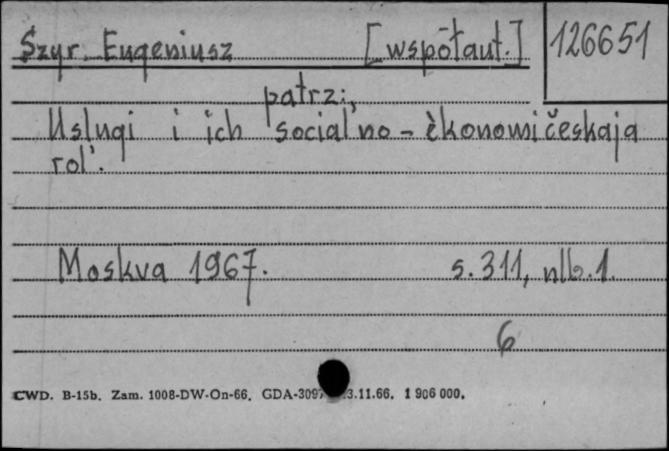 Szyr. Eugeniusz [współaut.] 126651
patrz:,
Uslugi i ich social'no-èkonomičeskaja
rol'.
Moskva 1967. s. 311, nlb. 1.
6
CWD. B-15b. Zam. 1008-DW-On-66. GDA-3097 3.11.66. 1 906 000.